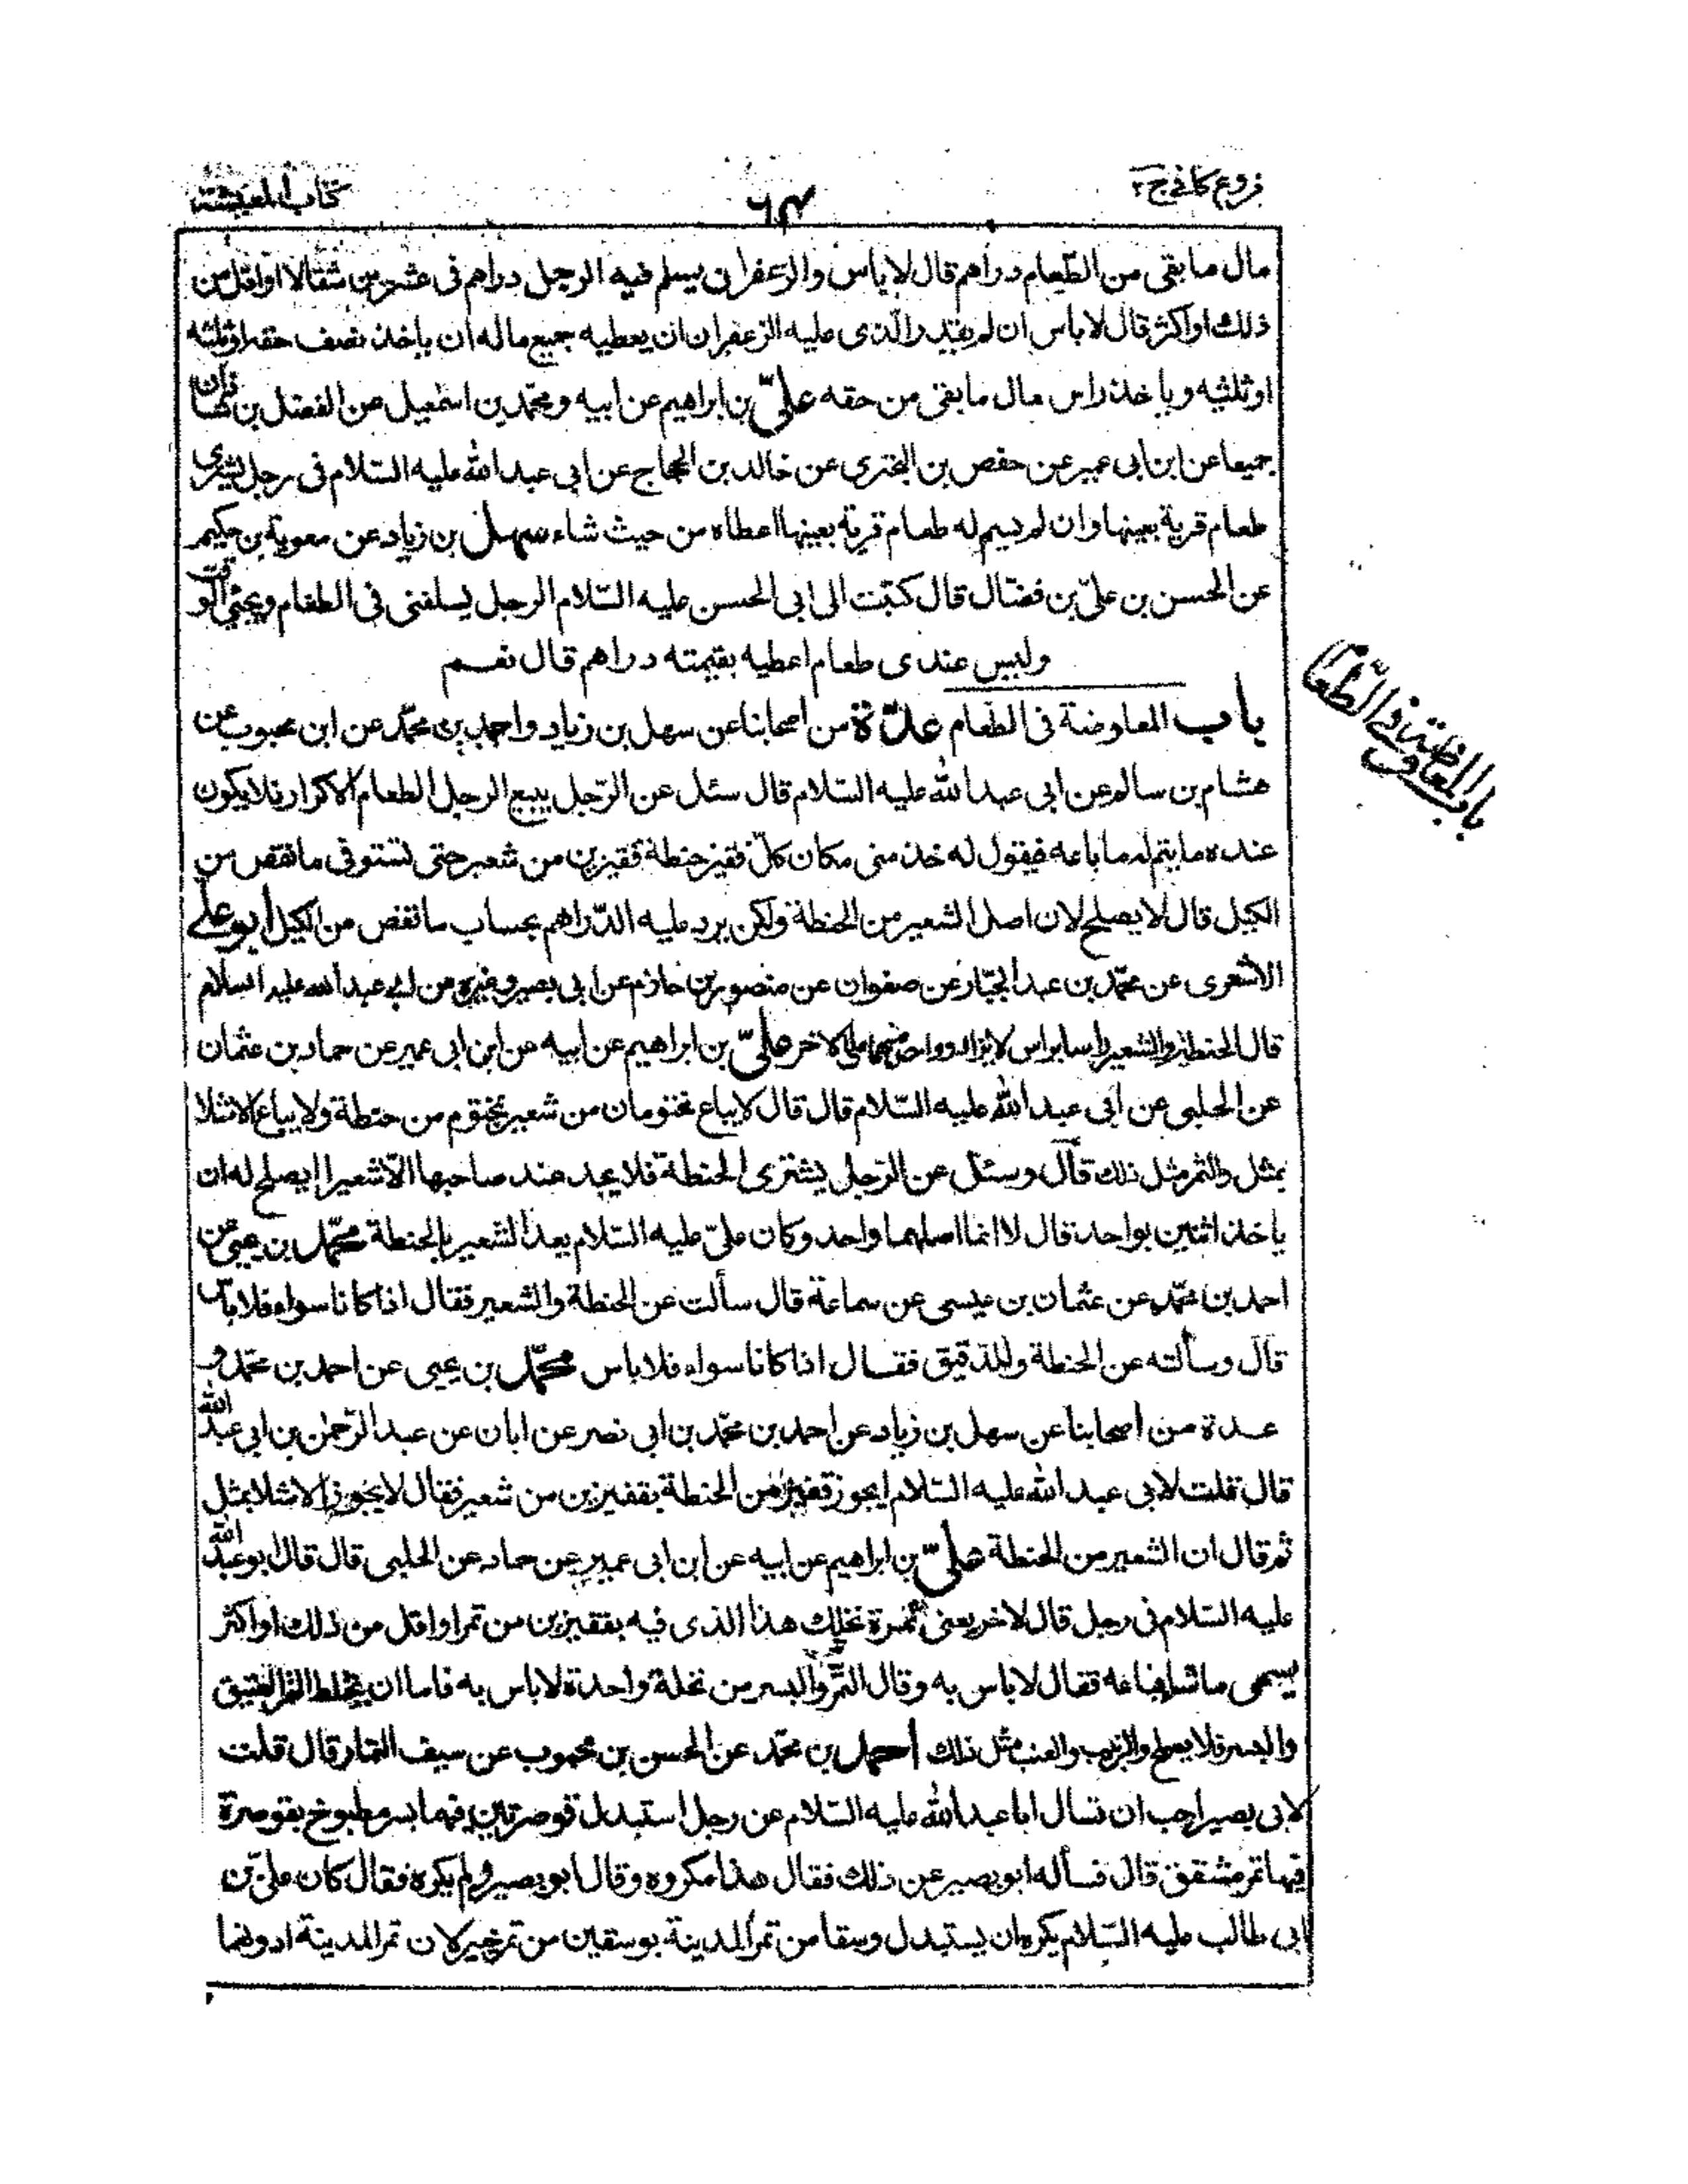 فروع كافي ج٢
كتاب المعيشة
مال ما بقى من الطعام دراهم قال لا باس والزعفران يسلم فيه الرجل دراهم فى عشرين مثقالا او اقل من
ذلك او اكثر قال لا باس ان لم يقدر الذى عليه الزعفران ان يعطيه جميع ماله ان ياخذ نصف حقه او ثلثه
او ثلثيه وياخذ راس مال ما بقى من حقه علىّ بن ابراهيم عن ابيه ومحمد بن اسمعيل عن الفضل بن شاذان
جميعا عن ابن ابى عمير عن حفص بن البخترى عن خالد بن الحجاج عن ابى عبد الله عليه السلام فى رجل يشترى
طعام قرية بعينها وان لم يسم له طعام قرية بعينها اعطاه من حيث شاء سهل بن زياد عن معوية بن حكيم
عن الحسن بن علىّ بن فضال قال كتبت الى ابى الحسن عليه السلام الرجل يسلفنى فى الطعام ويجئ الوقت
وليس عندى طعام اعطيه بقيمته دراهم قال نعم
باب المعاوضة فى الطعام
باب المعاوضة فى الطعام عدّة من اصحابنا عن سهل بن زياد واحمد بن محمد عن ابن محبوب عن
هشام بن سالم عن ابى عبد الله عليه السلام قال سئل عن الرجل يبيع الرجل الطعام الاكرار فلا يكون
عنده ما يتم له ما باعه فيقول له خذ منى مكان كل قفيز حنطة قفيزين من شعير حتى تستوفى ما نقص من
الكيل قال لا يصلح لان اصل الشعير من الحنطة ولكن يرد عليه الدراهم بحساب ما نقص من الكيل ابو على
الاشعرى عن محمد بن عبد الجبار عن صفوان عن منصور بن حازم عن ابى بصير وغيره عن ابى عبد الله عليه السلام
قال الحنطة والشعير راسا براس لا يزاد واحد منهما على الاخر علىّ بن ابراهيم عن ابيه عن ابن ابى عمير عن حماد بن عثمان
عن الحلبى عن ابى عبد الله عليه السلام قال قال لا يباع مختومان من شعير بمختوم من حنطة ولا يباع الا مثلا
بمثل والتمر مثل ذلك قال وسئل عن الرجل يشترى الحنطة فلا يجد عند صاحبها الا شعيرا ايصلح له ان
ياخذ اثنين بواحد قال لا انما اصلهما واحد وكان علىّ عليه السلام يعد الشعير بالحنطة محمد بن يحيى عن
احمد بن محمد عن عثمان بن عيسى عن سماعة قال سألت عن الحنطة والشعير فقال اذا كانا سواء فلا باس
قال وسألته عن الحنطة والدقيق فقال اذا كانا سواء فلا باس محمد بن يحيى عن احمد بن محمد و
عدة من اصحابنا عن سهل بن زياد عن احمد بن محمد بن ابى نصر عن ابان عن عبد الرحمن بن ابى عبد الله
قال قلت لابى عبد الله عليه السلام ايجوز قفيز من الحنطة بقفيزين من شعير فقال لا يجوز الا مثلا بمثل
ثم قال ان الشعير من الحنطة علىّ بن ابراهيم عن ابيه عن ابن ابى عمير عن حماد عن الحلبى قال قال ابو عبد الله
عليه السلام فى رجل قال لاخر بعنى ثمرة نخلك هذا الذى فيه بقفيزين من تمر او اقل من ذلك او اكثر
يسمى ما شاء فباعه فقال لا باس به وقال التمر والبسر من نخلة واحدة لا باس به فاما ان يختلط التمر العتيق
والبسر فلا يصلح والزبيب والعنب مثل ذلك احمد بن محمد عن الحسن بن محبوب عن سيف التمار قال قلت
لابى بصير احب ان تسال ابا عبد الله عليه السلام عن رجل استبدل قوصرتين فيهما بسر مطبوخ بقوصرة
فيها تمر مشقق قال فسأله ابو بصير عن ذلك فقال هذا مكروه وقال ابو بصير ولم يكره فقال كان علىّ بن
ابى طالب عليه السلام يكره ان يستبدل وسقا من تمر المدينة بوسقين من تمر خيبر لان تمر المدينة ادونهما